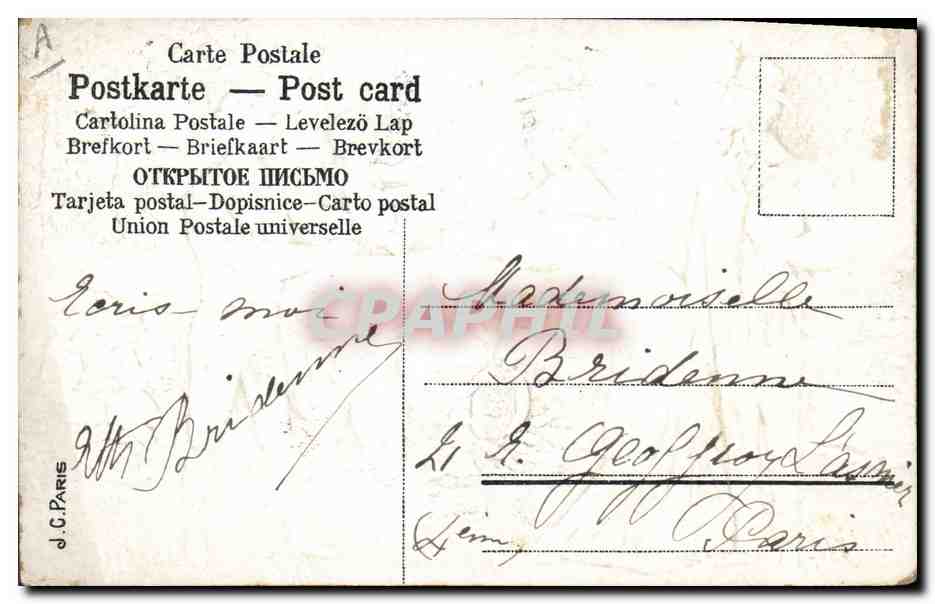 A
Carte Postale
Postkarte — Post card
Cartolina Postale — Levelezö Lap
Brefkort — Briefkaart — Brevkort
ОТКРЫТОЕ ПИСЬМО
Tarjeta postal–Dopisnice–Carto postal
Union Postale universelle
Ecris-moi
Bridenne
J.C. PARIS
Mademoiselle
Bridenne
21 R. Geoffroy L'asnier
Paris
4em,
CPAPHIL